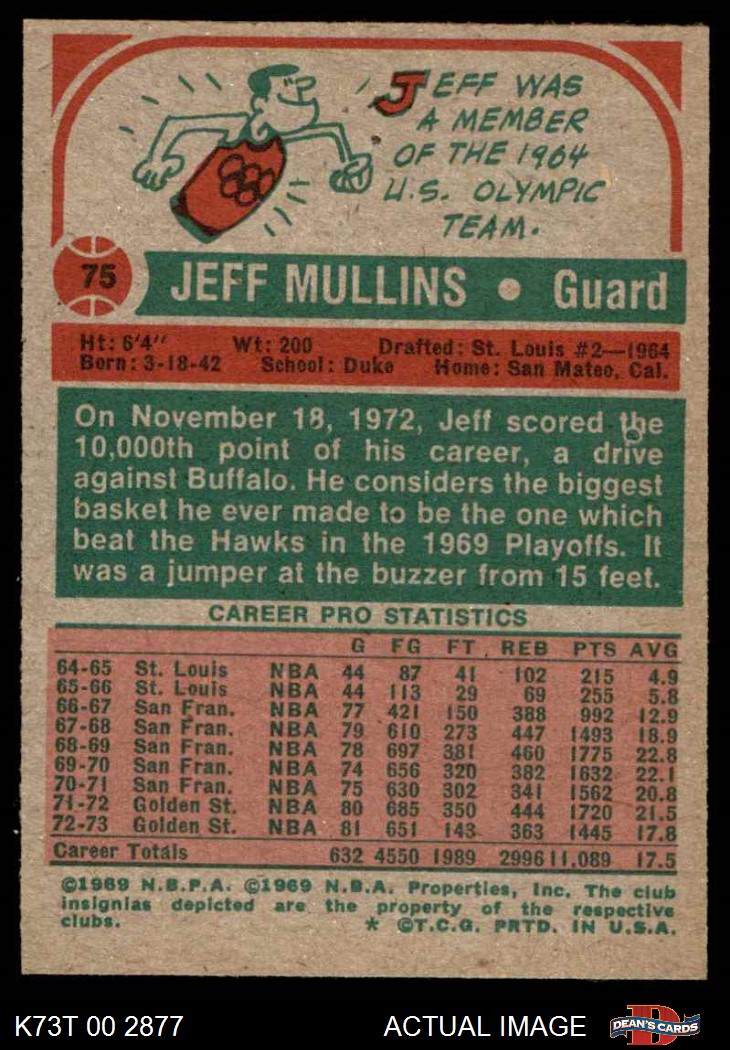 JEFF WAS
A MEMBER
OF THE 1964
U.S. OLYMPIC
TEAM.
75 JEFF MULLINS • Guard
Ht: 6'4" Wt: 200 Drafted: St. Louis #2—1964
Born: 3-18-42 School: Duke Home: San Mateo, Cal.
On November 18, 1972, Jeff scored the
10,000th point of his career, a drive
against Buffalo. He considers the biggest
basket he ever made to be the one which
beat the Hawks in the 1969 Playoffs. It
was a jumper at the buzzer from 15 feet.
CAREER PRO STATISTICS
G FG FT REB PTS AVG
64-65 St. Louis NBA 44 87 41 102 215 4.9
65-66 St. Louis NBA 44 113 29 69 255 5.8
66-67 San Fran. NBA 77 421 150 388 992 12.9
67-68 San Fran. NBA 79 610 273 447 1493 18.9
68-69 San Fran. NBA 78 697 381 460 1775 22.8
69-70 San Fran. NBA 74 656 320 382 1632 22.1
70-71 San Fran. NBA 75 630 302 341 1562 20.8
71-72 Golden St. NBA 80 685 350 444 1720 21.5
72-73 Golden St. NBA 81 651 143 363 1445 17.8
Career Totals 632 4550 1989 2996 11,089 17.5
©1969 N.B.P.A. ©1969 N.B.A. Properties, Inc. The club
insignias depicted are the property of the respective
clubs. * ©T.C.G. PRTD. IN U.S.A.
K73T 00 2877 ACTUAL IMAGE D DEAN'S CARDS